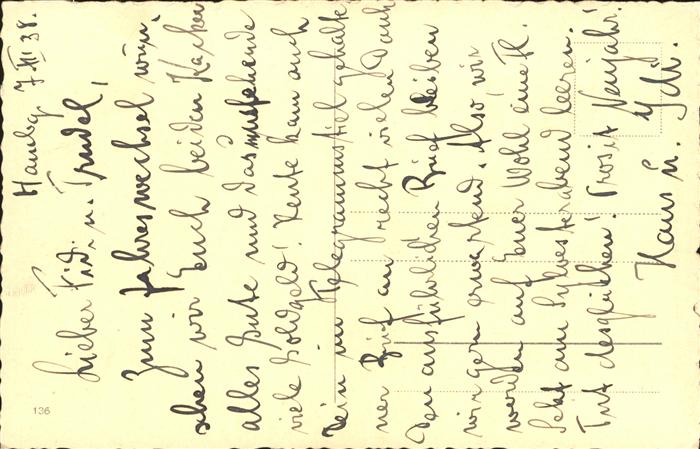 Hambg 7.III 38.
Lieber Frid. u. Trudel,
Zum Jahreswechsel wün-
schen wir Euch beiden
alles Gute und das
viele Goldgeld! Heute kam auch
Dein im Telegrammstiel gehalte
ner Brief an, recht vielen Dank
Den ausführlichen Brief bleiben
wir gern erwartend. Also wir
werden auf Euer Wohl eine Fl.
Sekt am Sylvesterabend leeren.
Tut desgleichen! Prosit Neujahr!
Hans u.
136